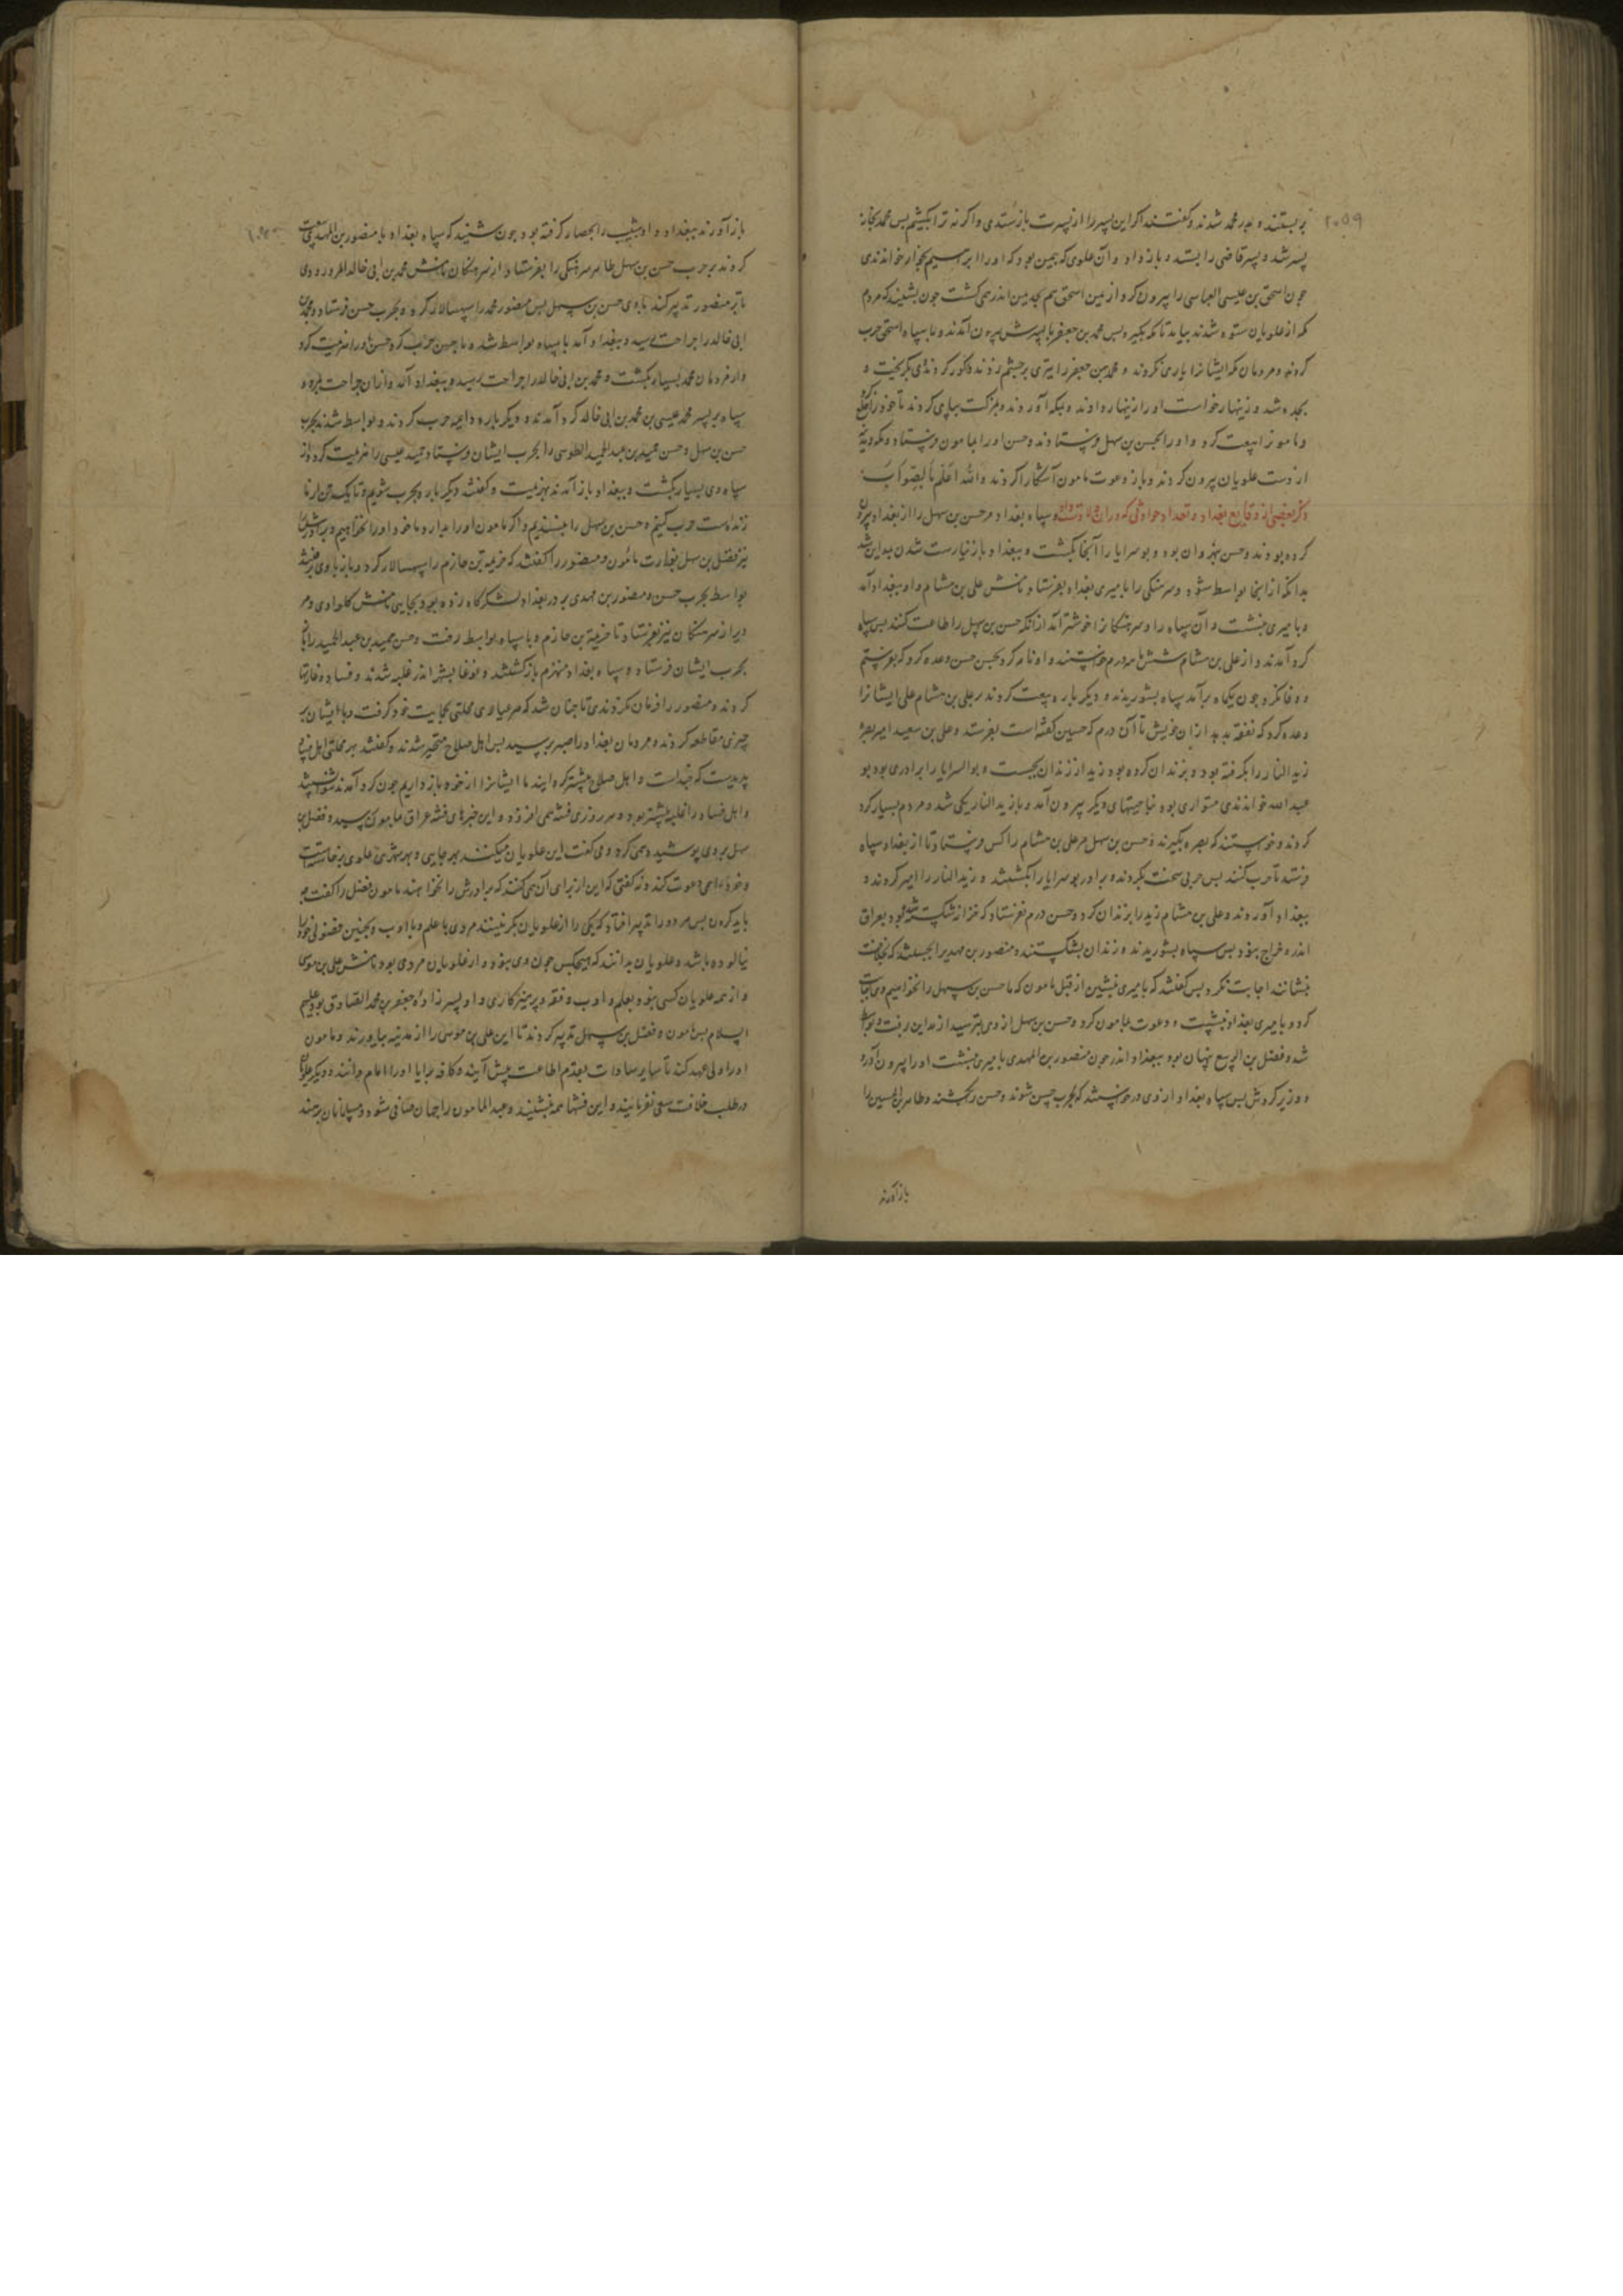 بر بستند و بدر محمد شدند و کفتند اکر این پسر را از پسرت بازستدی واکر نه ترا بکشیم پس محمد بخانه
پسر شد و پسر قاضی را بستد و باز داد و آن علوی که بیمن بود که او را ابرهسیم بجزار خواندندی
جون اسحق بن عیسی العباسی را بیرون کرد از یمن اسحق هم بحد یمن اندر همی کشت جون بشنید که مردم
مکه از علویان ستوه شدند بیامد تا مکه بکیرد پس محمد بن جعفر با پسرش بیرون آمدند و با سپاه اسحق حرب
کردند و مردمان مکه ایشانرا یاری نکردند و محمد بن جعفر را تیری بر جشم زدند و کور کردند وی بکریخت و
بجده شد و زینهار خواست او را زینهار دادند و بمکه آوردند و
و مامونرا بیعت کرد و او را بحسن بن سهل فرستادند و حسن او را بمامون فرستاد و مکه و مدینه
از دست علویان بیرون کردند و باز دعوت مامون آشکارا کردند والله اعلم بالصواب
ذکر بعضی از وقایع بغداد و تعداد حوادثی که در ان ولا دست داد و سپاه بغداد مر حسن بن سهل را از بغداد بیرون
کرده بودند و حسن بنهروان بود و بوسرایا را آنجا بکشت و ببغداد باز نیارست شدن بمداین شد
بدانکه از انجا بواسط شود و سرهنکی را بامیری بغداد بفرستاد نامش علی بن هشام و او ببغداد آمد
و بامیری بنشست و آن سپاه را و سرهنکانرا خوشتر آمد از انکه حسن بن سهل را طاعت کنند پس سپاه
کرد آمدند و از علی بن هشام شش ماهه درم خواستند و او نامه کرد بحسن حسن وعده کرد که بفرستم
و وفا نکرد جون یکماه برآمد سپاه بشوریدند و دیکر باره بیعت کردند بر علی بن هشام علی ایشانرا
وعده کرد که نفقه بدهد از ان خویش تا آن درم که حسین کفته است بفرستد و علی بن سعید امیر بصره
زید النار را بکرفته بود و بزندان کرده بود زید از زندان بجست و بوالسرایا را برادری بود بو
عبد الله خواندندی متواری بود بناحیتهای دیکر بیرون آمد و با زید النار یکی شد و مردم بسیار کرد
کردند و خواستند که بصره بکیرند و حسن بن سهل مر علی بن هشام را کس فرستاد تا از بغداد سپاه
فرستد تا حرب کنند پس حربی سخت بکردند و برادر بوسرایا را بکشتند و زید النار را اسیر کردند و
ببغداد آوردند و علی بن هشام زید را بزندان کرد و حسن درم نفرستاد که خزانه شکسته شده بود و بعراق
اندر خراج نبود پس سپاه بشوریدند و زندان بشکستند و منصور بن مهدی را بجستند که بخلافت
بنشانند اجابت نکرد پس کفتند که بامیری بنشین از قبل مامون که ما حسن بن سهل را نخواهیم وی اجابت
کرد و بامیری بغداد بنشست و دعوت بمامون کرد و حسن بن سهل از وی بترسید از مداین برفت و بواسط
شد و فضل بن الربیع پنهان بود ببغداد اندر جون منصور بن المهدی بامیری بنشست او را بیرون آورد
و وزیر کردش پس سپاه بغداد از وی درخواستند که بحرب حسن شوند و حسن را بکشند و طاهر بن الحسین را
باز آورند
باز آورند ببغداد و او شبیب را بحصار کرفته بود جون شنید که سپاه بغداد با منصور بن المهدی بیعت
کردند بر حرب حسن بن سهل طاهر سرهنکی را بفرستاد از سرهنکان نامش محمد بن ابی خالد المرورودی
تا بر منصور تدبیر کند با وی حسن بن سهل پس منصور محمد را سپهسالار کرد و بحرب حسن فرستاد و محمد بن
ابی خالد را جراحت رسید و ببغداد آمد با سپاه بواسط شد و با حسن حرب کرد و حسن او را هزیمت کرد
و از مردمان محمد بسیار بکشت و محمد بن ابی خالد را جراحت رسید و ببغداد آمد و از ان جراحت بمرد و
سپاه بر پسر محمد عیسی بن محمد بن ابی خالد کرد آمدند و دیکر باره داعیه حرب کردند و بواسط شدند بحرب
حسن بن سهل و حسن حمید بن عبد الحمید الطوسی را بحرب ایشان فرستاد حمید عیسی را هزیمت کرد و از
سپاه وی بسیار بکشت و ببغداد باز آمدند بهزیمت و کفتند دیکر بار بحرب شویم و تا یک تن از ما
زنده است حرب کنیم و حسن بن سهل را نپسندیم و اکر مامون او را بدارد ما خود او را نخواهیم و برادرش را
نیز فضل بن سهل بوزارت مامون و منصور را کفتند که خزیمة بن خازم را سپهسالار کرد و باز با وی
بواسط بحرب حسن و منصور بن مهدی بر در بغداد لشکرگاه زده بود بجایی نامش کلوادی و مر
ویرا از سرهنکان نیز بفرستاد تا خزیمة بن خازم و با سپاه بواسط رفت و حسن حمید بن عبد الحمید را باز
بحرب ایشان فرستاد و سپاه بغداد منهزم باز کشتند و غوغا بشهر اندر غلبه شدند و فساد و غارتها
کردند و منصور را فرمان نکردندی تا جنان شد که هر عیاری محلتی بحمایت خود کرفت و با ایشان بر
جیزی مقاطعه کردند و مردمان بغداد را صبر برسید پس اهل صلاح متحیر شدند و کفتند بهر محلتی اهل فساد
پدیدست که جند است و اهل صلاح بیشترکه ایند ما ایشانرا از خود باز داریم جون کرد آمدند
و اهل فساد را غلبه بیشتر بود و هر روزی فتنه همی افزود و این خبرهای فتنه عراق بمامون رسید و فضل بن
سهل بر وی پوشیده همی کرد و می کفت این علویان میکنند بهر جایی و بهر شهری علوی برخاسته است
و خود را همی دعوت کند و نه کفتی که این از برای آن می کنند که برادرش را نخواهند مامون فضل را کفت چه
باید کردن پس هر دو را تدبیر افتاد که یکی را از علویان بکزینند مردی با علم و با ادب و بجنین فضولی خود را
نیالوده باشد و علویان بدانند که هیچکس جون وی نبود و از علویان مردی بود نامش علی بن موسی
و از همه علویان کسی نبود بعلم و ادب و فقه و پرهیزکاری و او پسر زاده جعفر بن محمد الصادق بود علیهم
السلام پس مامون و فضل بن سهل تدبیر کردند تا این علی بن موسی را از مدینه بیاورند و مامون
او را ولی عهد کند تا سایر سادات بقدم اطاعت پیش آیند و کافه برایا او را امام دانند و دیکر علویان
در طلب خلافت سعی ننمایند و این فتنها همه بنشیند و عبد المامون را جهان صافی شود و مسلمانان برهند